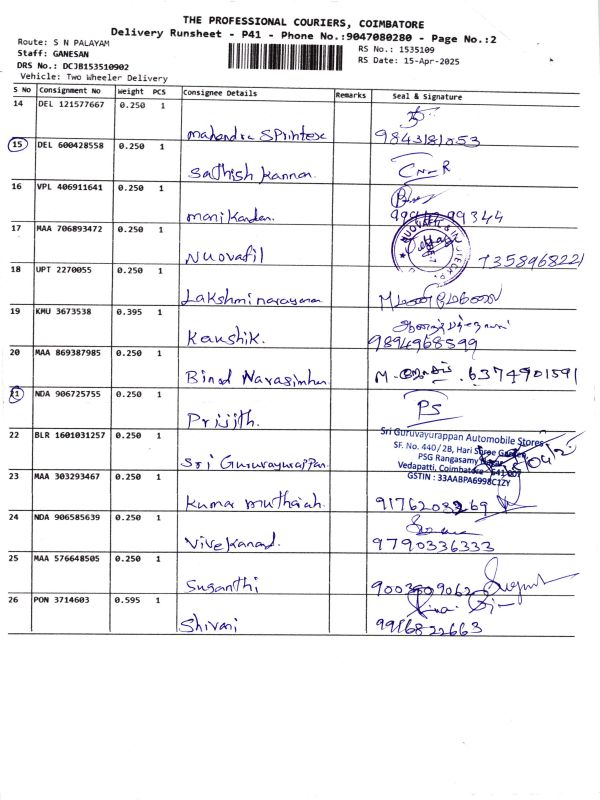 THE PROFESSIONAL COURIERS, COIMBATORE
Delivery Runsheet - P41 - Phone No.:9047080280 - Page No.:2
Route: S N PALAYAM
Staff: GANESAN
DRS No.: DCJB153510902
Vehicle: Two Wheeler Delivery
RS No.: 1535109
RS Date: 15-Apr-2025
S No Consignment No Weight PCS Consignee Details Remarks Seal & Signature
14 DEL 121577667 0.250 1
Mahendra SPrintex 9843181053
15 DEL 600428558 0.250 1
Sathish Kannan. CNR
16 VPL 406911641 0.250 1
manikandan.
17 MAA 706893472 0.250 1
Nuovafil 7358968221
18 UPT 2270055 0.250 1
Lakshmi narayanan
19 KMU 3673538 0.395 1
Kaushik. 9894968599
20 MAA 869387985 0.250 1
Binod Narasimhan 6374901591
21 NDA 906725755 0.250 1
Prijith. PS
22 BLR 1601031257 0.250 1
Sri Guruvayurappan.
Sri Guruvayurappan Automobile Stores
SF. No. 440/2B, Hari Shree Garden,
PSG Rangasamy
Vedapatti, Coimbatore - 641 007
GSTIN : 33AABPA6998C1ZY
23 MAA 303293467 0.250 1
Kumar muthaiah.
24 NDA 906585639 0.250 1
Vivekanand. 9790336333
25 MAA 576648505 0.250 1
Suganthi
26 PON 3714603 0.595 1
Shivani 9916822663